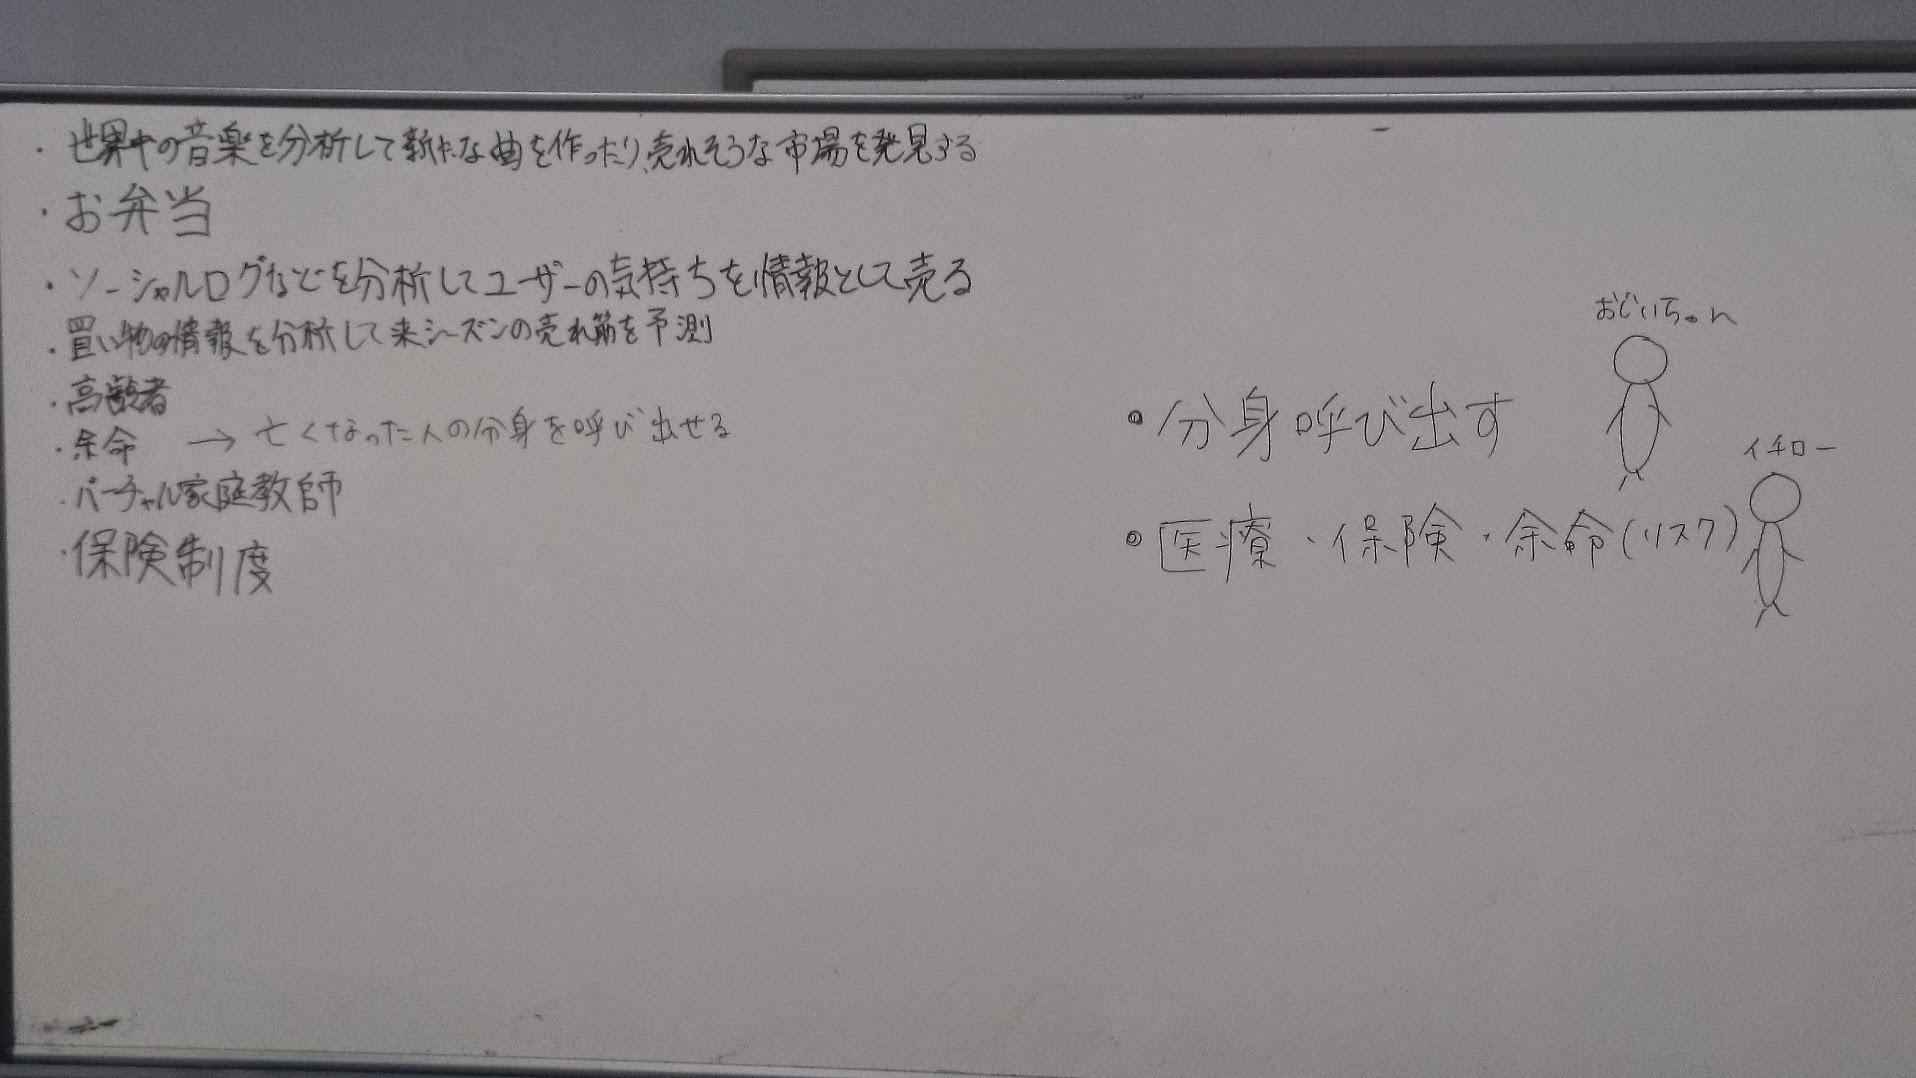 ・世界中の音楽を分析して新たな曲を作ったり、売れそうな市場を発見する
・お弁当
・ソーシャルログなどを分析してユーザーの気持ちを情報として売る
・買い物の情報を分析して来シーズンの売れ筋を予測
・高齢者
・余命 → 亡くなった人の分身を呼び出せる
・バーチャル家庭教師
・保険制度
おじいちゃん
・分身呼び出す
イチロー
・医療・保険・余命(リスク)